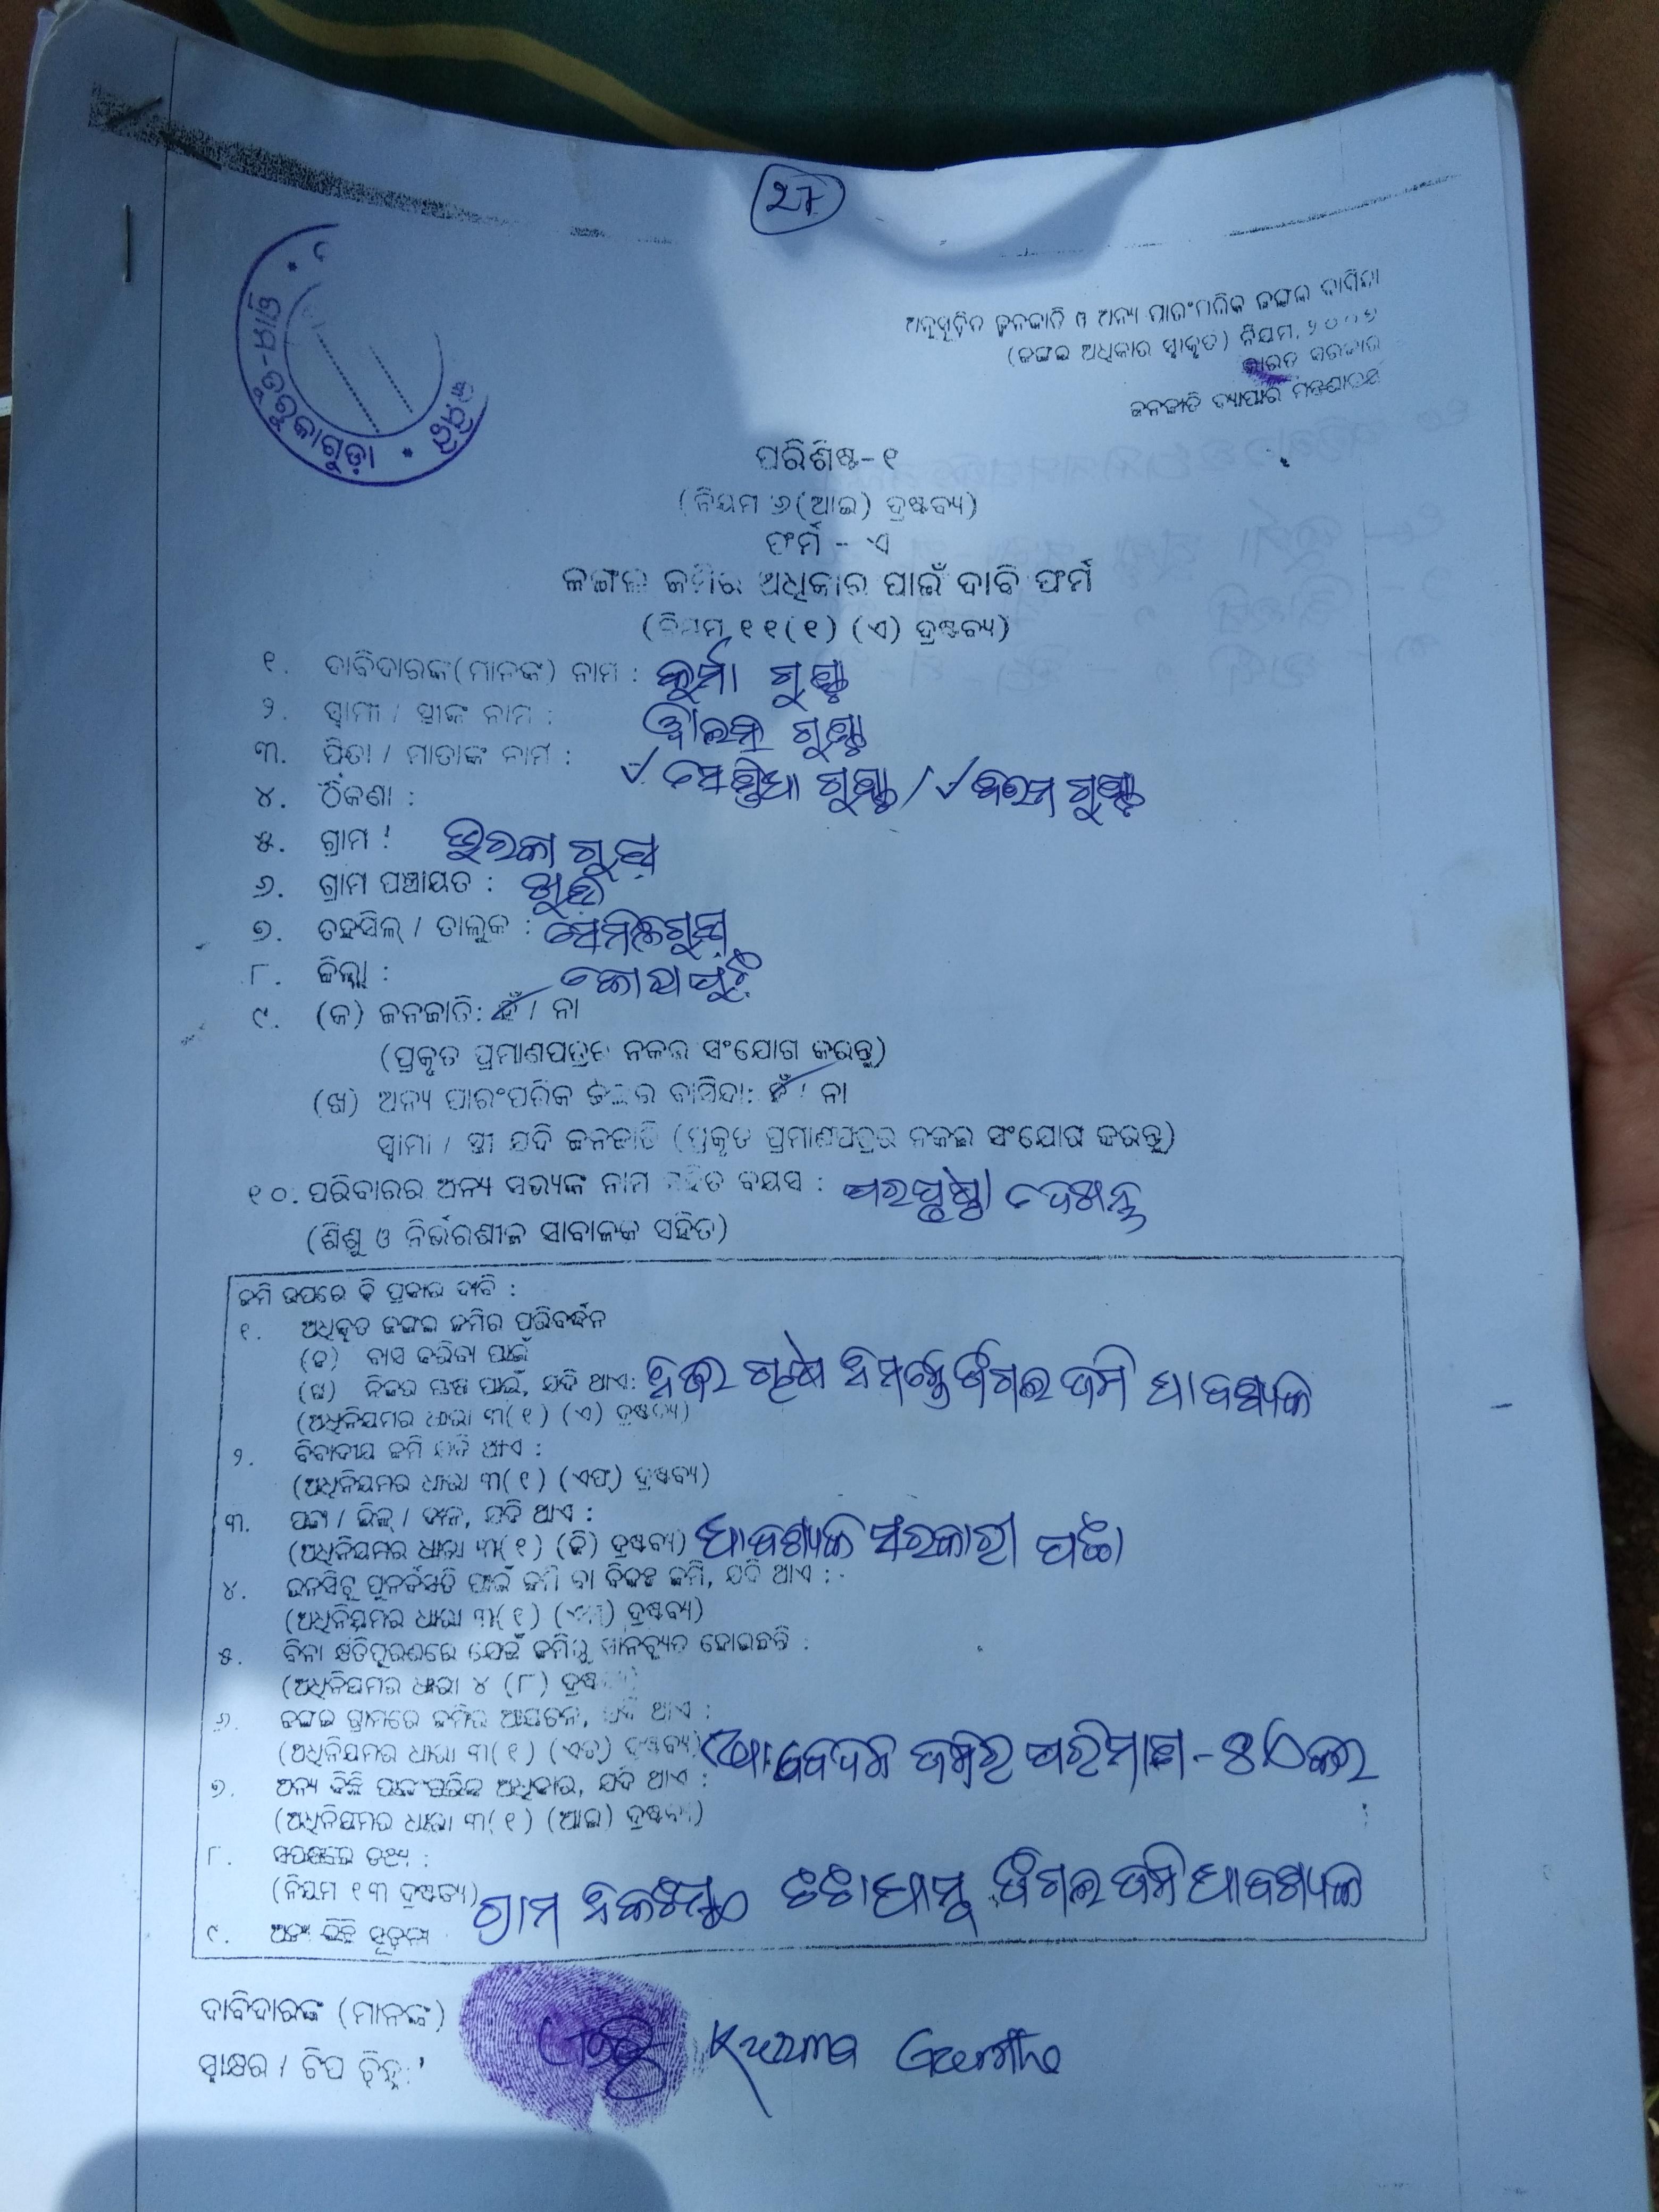 27
ଅନୁସୂଚିତ ଜନଜାତି ଓ ଅନ୍ୟ ପାରଂପରିକ ଜଙ୍ଗଲ ବାସିନ୍ଦା
(ଜଙ୍ଗଲ ଅଧିକାର ସ୍ୱୀକୃତ) ନିୟମ, ୨୦୦୭
ଭାରତ ସରକାର
ଜନଜାତି ବ୍ୟାପାର ମନ୍ତ୍ରଣାଳୟ
ପରିଶିଷ୍ଟ-୧
(ନିୟମ ୬(ଆଇ) ଦ୍ରଷ୍ଟବ୍ୟ)
ଫର୍ମ - ଏ
ଜଙ୍ଗଲ ଜମିର ଅଧିକାର ପାଇଁ ଦାବି ଫର୍ମ
(ନିୟମ ୧୧(୧) (ଏ) ଦ୍ରଷ୍ଟବ୍ୟ)
୧. ଦାବିଦାରଙ୍କ(ମାନଙ୍କ) ନାମ : କୁର୍ମା ଗୁଣ୍ଠା
୨. ସ୍ୱାମୀ / ସ୍ତ୍ରୀଙ୍କ ନାମ : ଗୁଣ୍ଠା
୩. ପିତା / ମାତାଙ୍କ ନାମ : ଗୁଣ୍ଠା / ଗୁଣ୍ଠା
୪. ଠିକଣା :
୫. ଗ୍ରାମ :
୬. ଗ୍ରାମ ପଞ୍ଚାୟତ :
୭. ତହସିଲ୍ / ତାଲୁକ : ସେମିଳିଗୁଡ଼ା
୮. ଜିଲ୍ଲା : କୋରାପୁଟ
୯. (କ) ଜନଜାତି: ହଁ / ନା
(ପ୍ରକୃତ ପ୍ରମାଣପତ୍ରର ନକଲ ସଂଯୋଗ କରନ୍ତୁ)
(ଖ) ଅନ୍ୟ ପାରଂପରିକ ଜଙ୍ଗଲ ବାସିନ୍ଦା: ହଁ / ନା
ସ୍ୱାମୀ / ସ୍ତ୍ରୀ ଯଦି ଜନଜାତି (ପ୍ରକୃତ ପ୍ରମାଣପତ୍ରର ନକଲ ସଂଯୋଗ କରନ୍ତୁ)
୧୦. ପରିବାରର ଅନ୍ୟ ସଭ୍ୟଙ୍କ ନାମ ସହିତ ବୟସ : ପରପୃଷ୍ଠା ଦେଖନ୍ତୁ
(ଶିଶୁ ଓ ନିର୍ଭରଶୀଳ ସାବାଳକ ସହିତ)
ଜମି ଉପରେ କି ପ୍ରକାର ଦାବି :
୧. ଅଧିକୃତ ଜଙ୍ଗଲ ଜମିର ପରିବର୍ଦ୍ଧନ
(କ) ବାସ କରିବା ପାଇଁ
(ଖ) ନିଜର ଚାଷ ପାଇଁ, ଯଦି ଥାଏ: ନିଜର ଚାଷ ନିମନ୍ତେ ଜଙ୍ଗଲ ଜମି ଆବଶ୍ୟକ
(ଅଧିନିୟମର ଧାରା ୩(୧) (ଏ) ଦ୍ରଷ୍ଟବ୍ୟ)
୨. ବିବାଦୀୟ ଜମି ଯଦି ଥାଏ :
(ଅଧିନିୟମର ଧାରା ୩(୧) (ଏଫ୍) ଦ୍ରଷ୍ଟବ୍ୟ)
୩. ପଟ୍ଟା / ଲିଜ୍ / ଦାନ, ଯଦି ଥାଏ :
(ଅଧିନିୟମର ଧାରା ୩(୧) (ଜି) ଦ୍ରଷ୍ଟବ୍ୟ) ଆବଶ୍ୟକ ସରକାରୀ ପଟ୍ଟା
୪. ଇନସିଟୁ ପୁନର୍ବସତି ପାଇଁ ଜମି ବା ବିକଳ୍ପ ଜମି, ଯଦି ଥାଏ :
(ଅଧିନିୟମର ଧାରା ୩(୧) ଦ୍ରଷ୍ଟବ୍ୟ)
୫. ବିନା କ୍ଷତିପୂରଣରେ ଯେଉଁ ଜମିରୁ ସ୍ଥାନଚ୍ୟୁତ ହୋଇଛନ୍ତି :
(ଅଧିନିୟମର ଧାରା ୪ (୮) ଦ୍ରଷ୍ଟବ୍ୟ)
୬. ଜଙ୍ଗଲ ଗ୍ରାମରେ ଜମିର ଆୟତନ, ଯଦି ଥାଏ :
(ଅଧିନିୟମର ଧାରା ୩(୧) (ଏଚ୍) ଦ୍ରଷ୍ଟବ୍ୟ) ଆବେଦନ ଜମିର ପରିମାଣ -
୭. ଅନ୍ୟ କିଛି ପାରଂପରିକ ଅଧିକାର, ଯଦି ଥାଏ :
(ଅଧିନିୟମର ଧାରା ୩(୧) (ଆଇ) ଦ୍ରଷ୍ଟବ୍ୟ)
୮. ସପକ୍ଷରେ ତଥ୍ୟ :
(ନିୟମ ୧୩ ଦ୍ରଷ୍ଟବ୍ୟ)
୯. ଅନ୍ୟ କିଛି ସୂଚନା ଗ୍ରାମ ଜଙ୍ଗଲ ଜମି ଆବଶ୍ୟକ
ଦାବିଦାରଙ୍କ (ମାନଙ୍କ)
ସ୍ୱାକ୍ଷର / ଟିପ ଚିହ୍ନ : Kurma Guntha